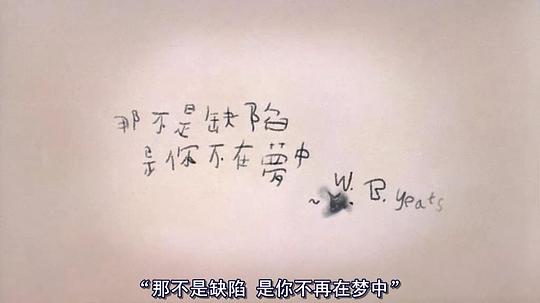 那不是缺陷
是你不在夢中
~W. B. yeats
“那不是缺陷 是你不再在梦中”